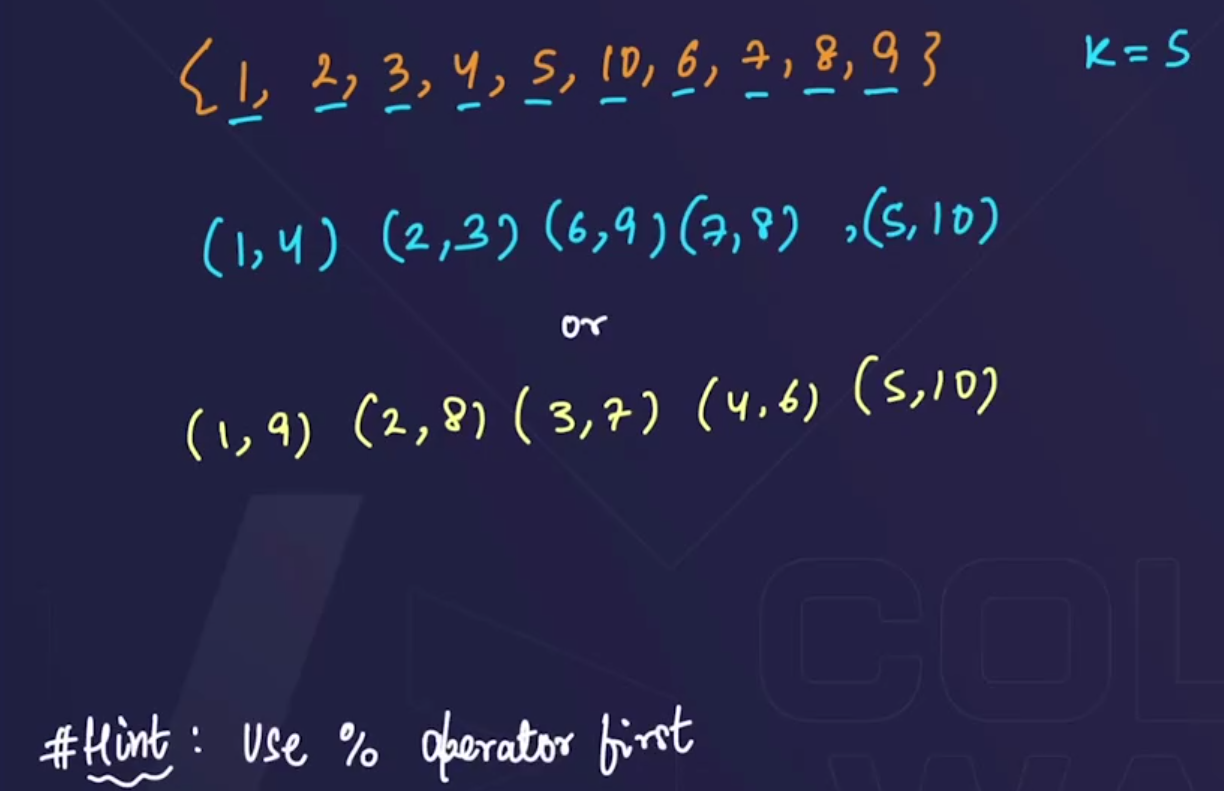 {1, 2, 3, 4, 5, 10, 6, 7, 8, 9} K=5
(1,4) (2,3) (6,9) (7,8) ,(5,10)
or
(1,9) (2,8) (3,7) (4,6) (5,10)
#Hint: Use % operator first
COL
WA